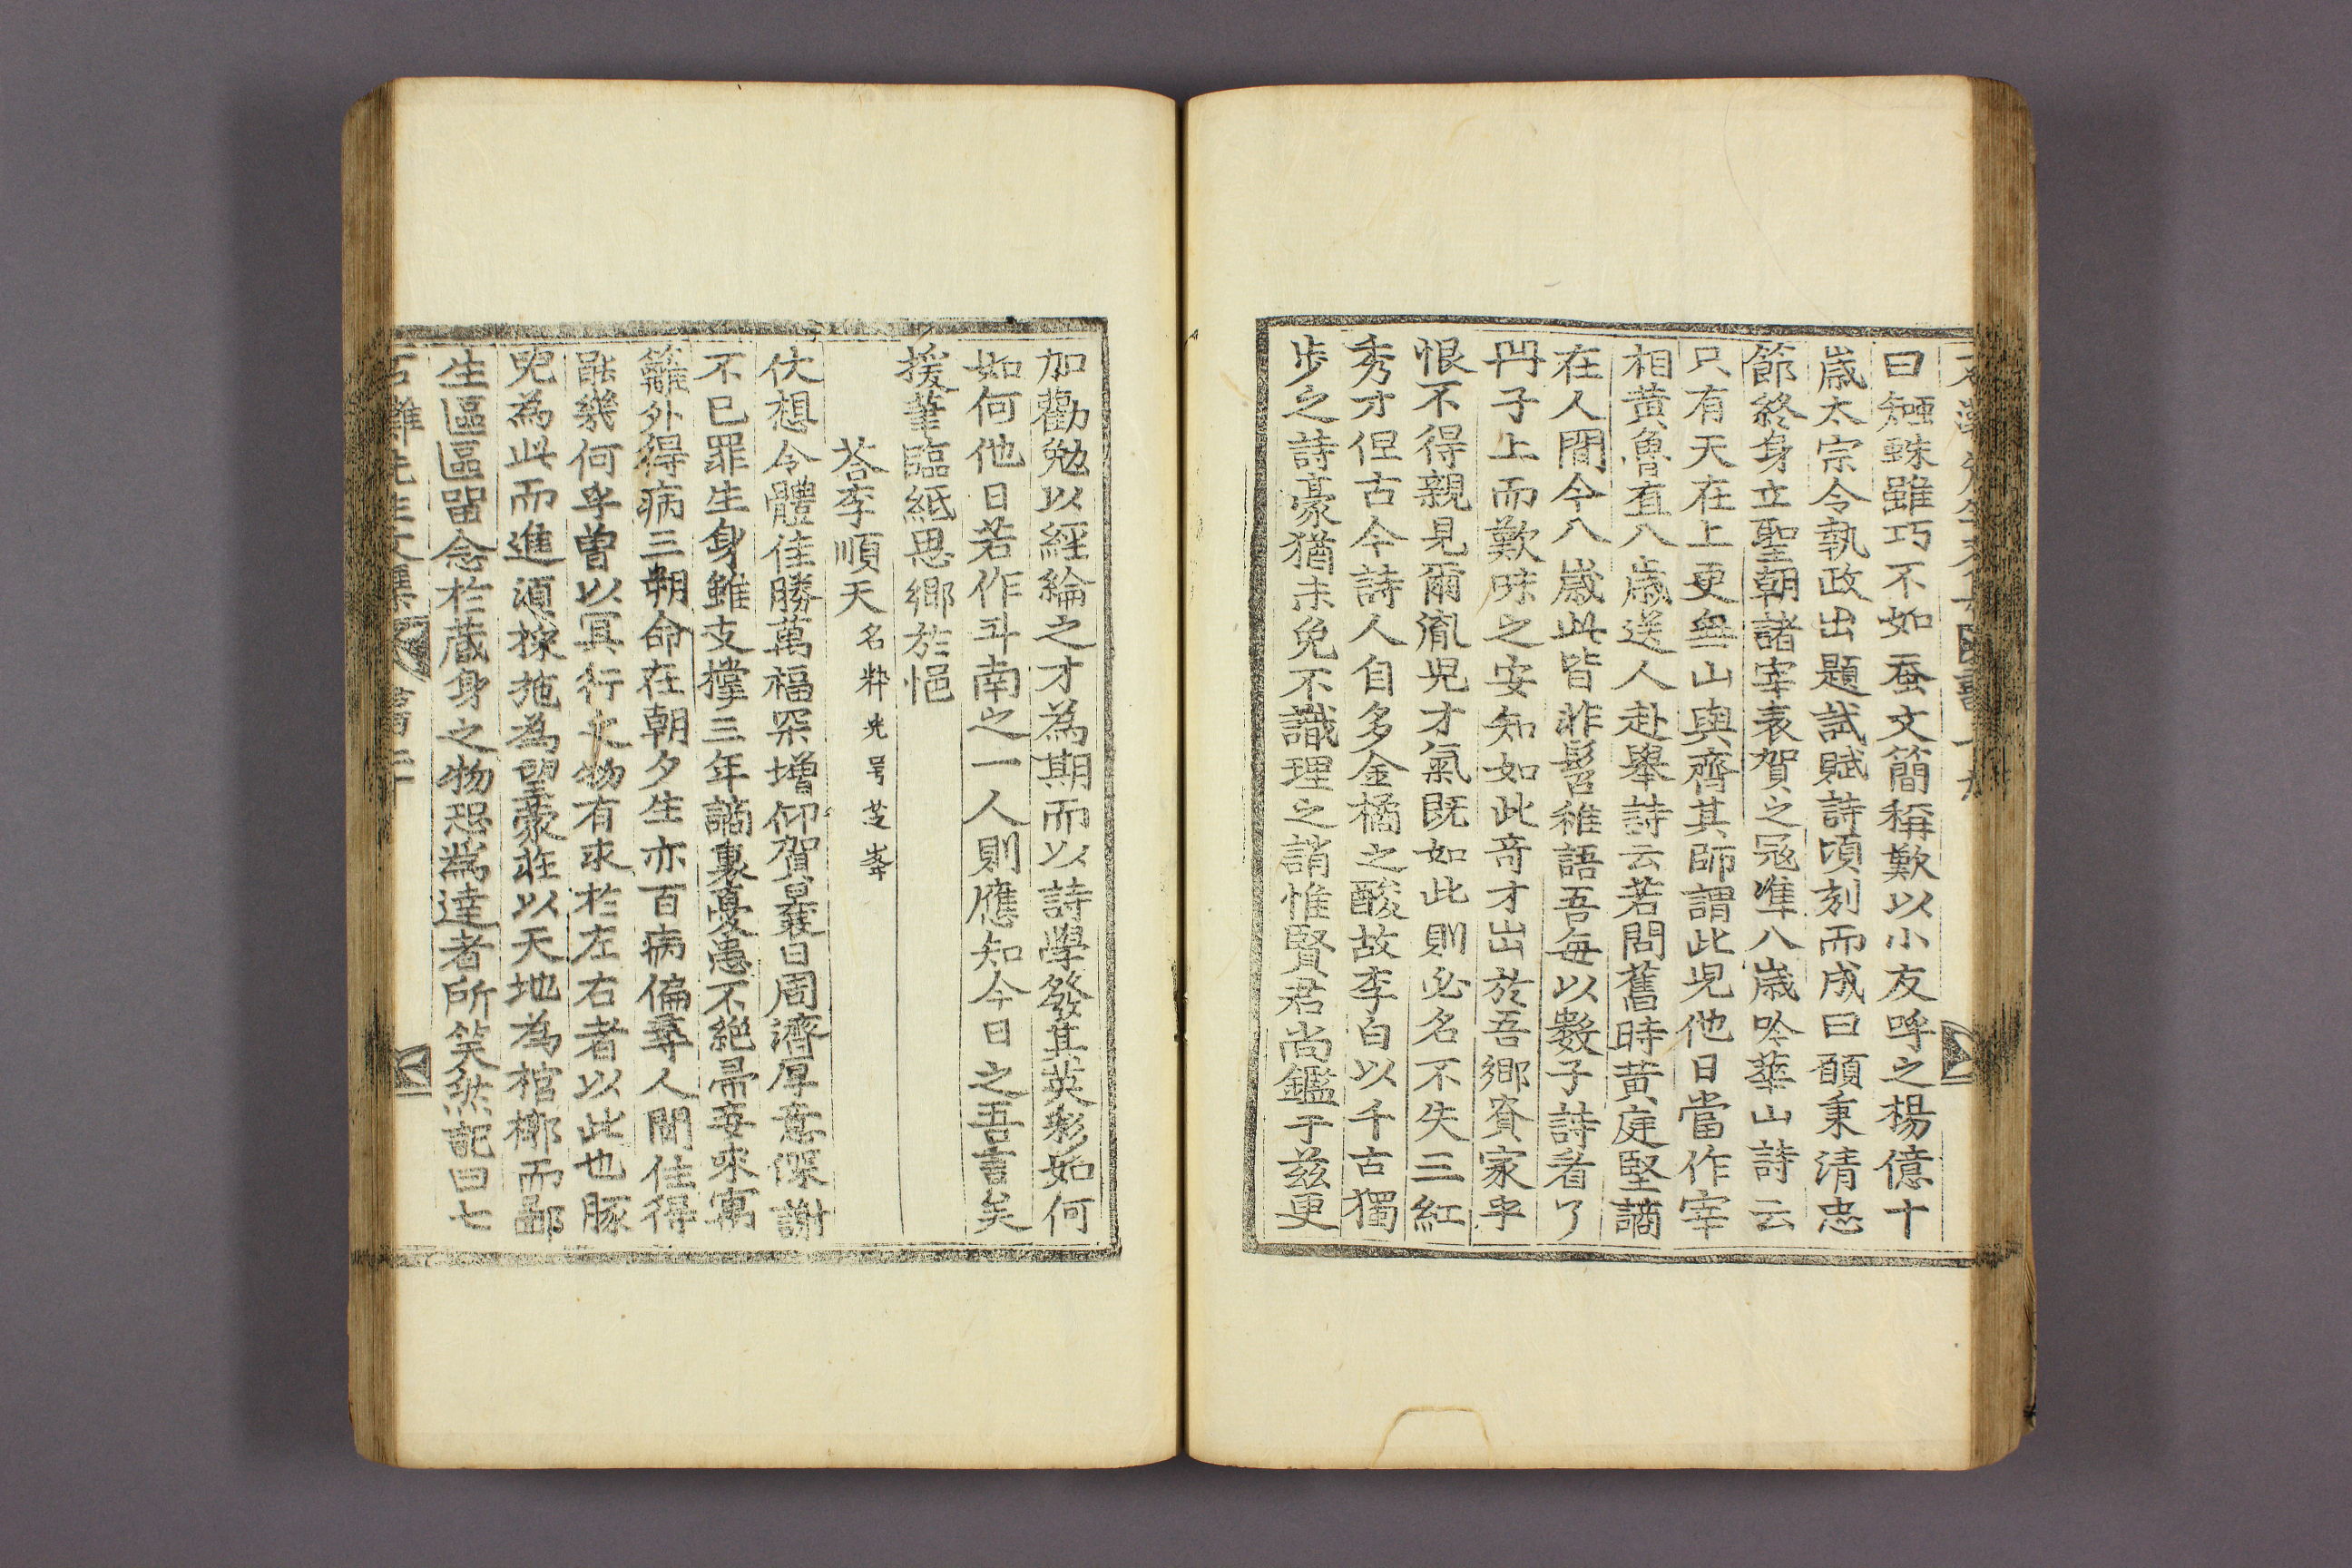 曰蜘蛛雖巧不如蚕文簡稱歎以小友呼之楊億十
歲太宗令執政出題試賦詩頃刻而成曰願秉淸忠
節終身立聖朝諸宰表賀之冦準八歲吟華山詩云
只有天在上更無山與齊其師謂此児他日當作宰
相黃魯直八歲送人赴擧詩云若問舊時黃庭堅謫
在人間今八歲此皆非髫稚語吾每以數子詩看了
丹子上而歎味之安知如此奇才出於吾鄕賓家乎
恨不得親見爾胤児才氣旣如此則必名不失三紅
秀才但古今詩人自多金橘之酸故李白以千古獨
步之詩豪猶未免不識理之誚惟賢君尙鑑于茲更
加勸勉以經綸之才為期而以詩學發其英彩如何
如何他日若作斗南之一人則應知今日之吾言矣
援筆臨紙思鄕於悒
荅李順天名粹光号芝峯
伏想令體佳勝萬福罙增仰賀曩日周濟厚意深謝
不已罪生身雖支撑三年謫裏憂患不絶帚妾來寓
籬外得病三朔命在朝夕生亦百病偏尋人間佳得
話幾何乎曾以冥行之物有求於左右者以此也豚
児為此而進須探施為望蒙莊以天地為棺槨而鄙
生區區留念於蔵身之物恐為達者所笑然記曰七